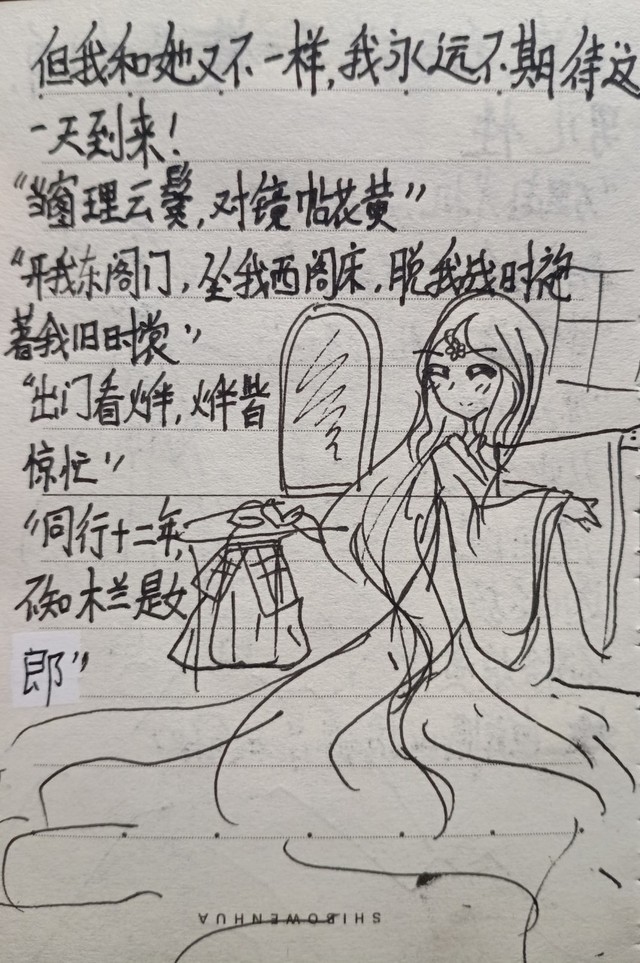 但我和她又不一样,我永远不期待这
一天到来!
“当窗理云鬓,对镜帖花黄”
“开我东阁门,坐我西阁床,脱我战时袍
著我旧时裳”
“出门看火伴,火伴皆
惊忙”
“同行十二年,
不知木兰是女
郎”
SHIBOWENHUA